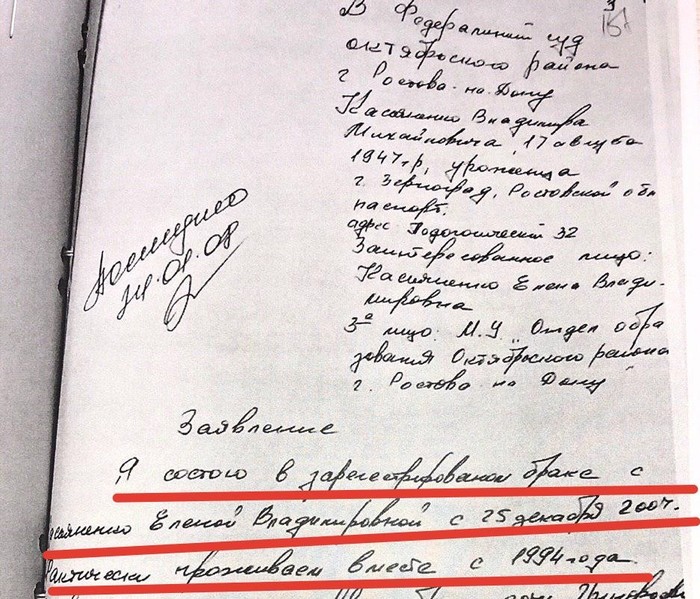 3
В Федеральный суд
октябрьского района
г Ростова-на-Дону
Касяненко Владимира
Михайловича, 17 августа
1947г.р, уроженца
г. Зерноград, Ростовской обл
паспорт.
адрес
32
Заинтересованное лицо:
Касяненко Елена Влади-
мировна
3е лицо: М.У "Отдел обра
зования Октябрьского района
г. Ростова на Дону"
24.01.08
Заявление
Я состою в зарегестрированом браке с
асяненко Еленой Владимировной с 25 декабря 2007г.
актически проживаем вместе с 1994 года.